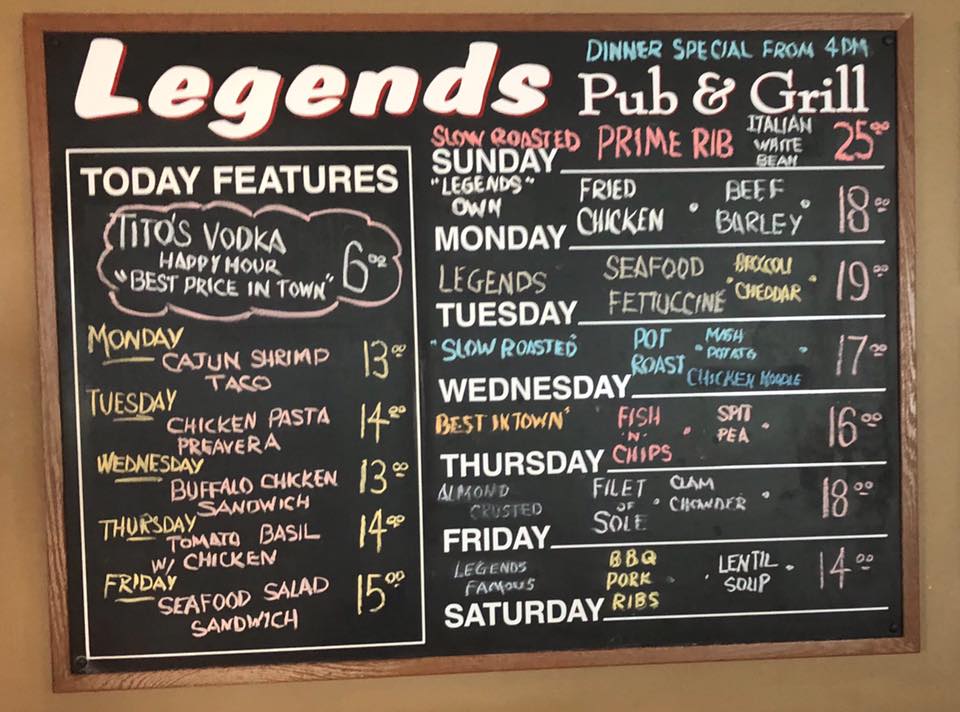 Legends
DINNER SPECIAL FROM 4PM
Pub & Grill
TODAY FEATURES
TITO'S VODKA
HAPPY HOUR
"BEST PRICE IN TOWN"
6.00
MONDAY
CAJUN SHRIMP
TACO
13.00
TUESDAY
CHICKEN PASTA
PREAVERA
14.00
WEDNESDAY
BUFFALO CHICKEN
SANDWICH
13.00
THURSDAY
TOMATO BASIL
W/ CHICKEN
14.00
FRIDAY
SEAFOOD SALAD
SANDWICH
15.00
SLOW ROASTED PRIME RIB
ITALIAN
WHITE
BEAN
25.00
SUNDAY
"LEGENDS"
OWN
FRIED
CHICKEN
BEEF
BARLEY
18.00
MONDAY
LEGENDS
SEAFOOD
FETTUCCINE
BROCCOLI
"CHEDDAR"
19.00
TUESDAY
"SLOW ROASTED"
POT
ROAST
MASH
POTATO
CHICKEN NOODLE
17.00
WEDNESDAY
BEST IN TOWN"
FISH
'N'
CHIPS
SPIT
PEA
16.00
THURSDAY
ALMOND
CRUSTED
FILET
OF
SOLE
CLAM
CHOWDER
18.00
FRIDAY
LEGENDS
FAMOUS
BBQ
PORK
RIBS
LENTIL
SOUP
14.00
SATURDAY